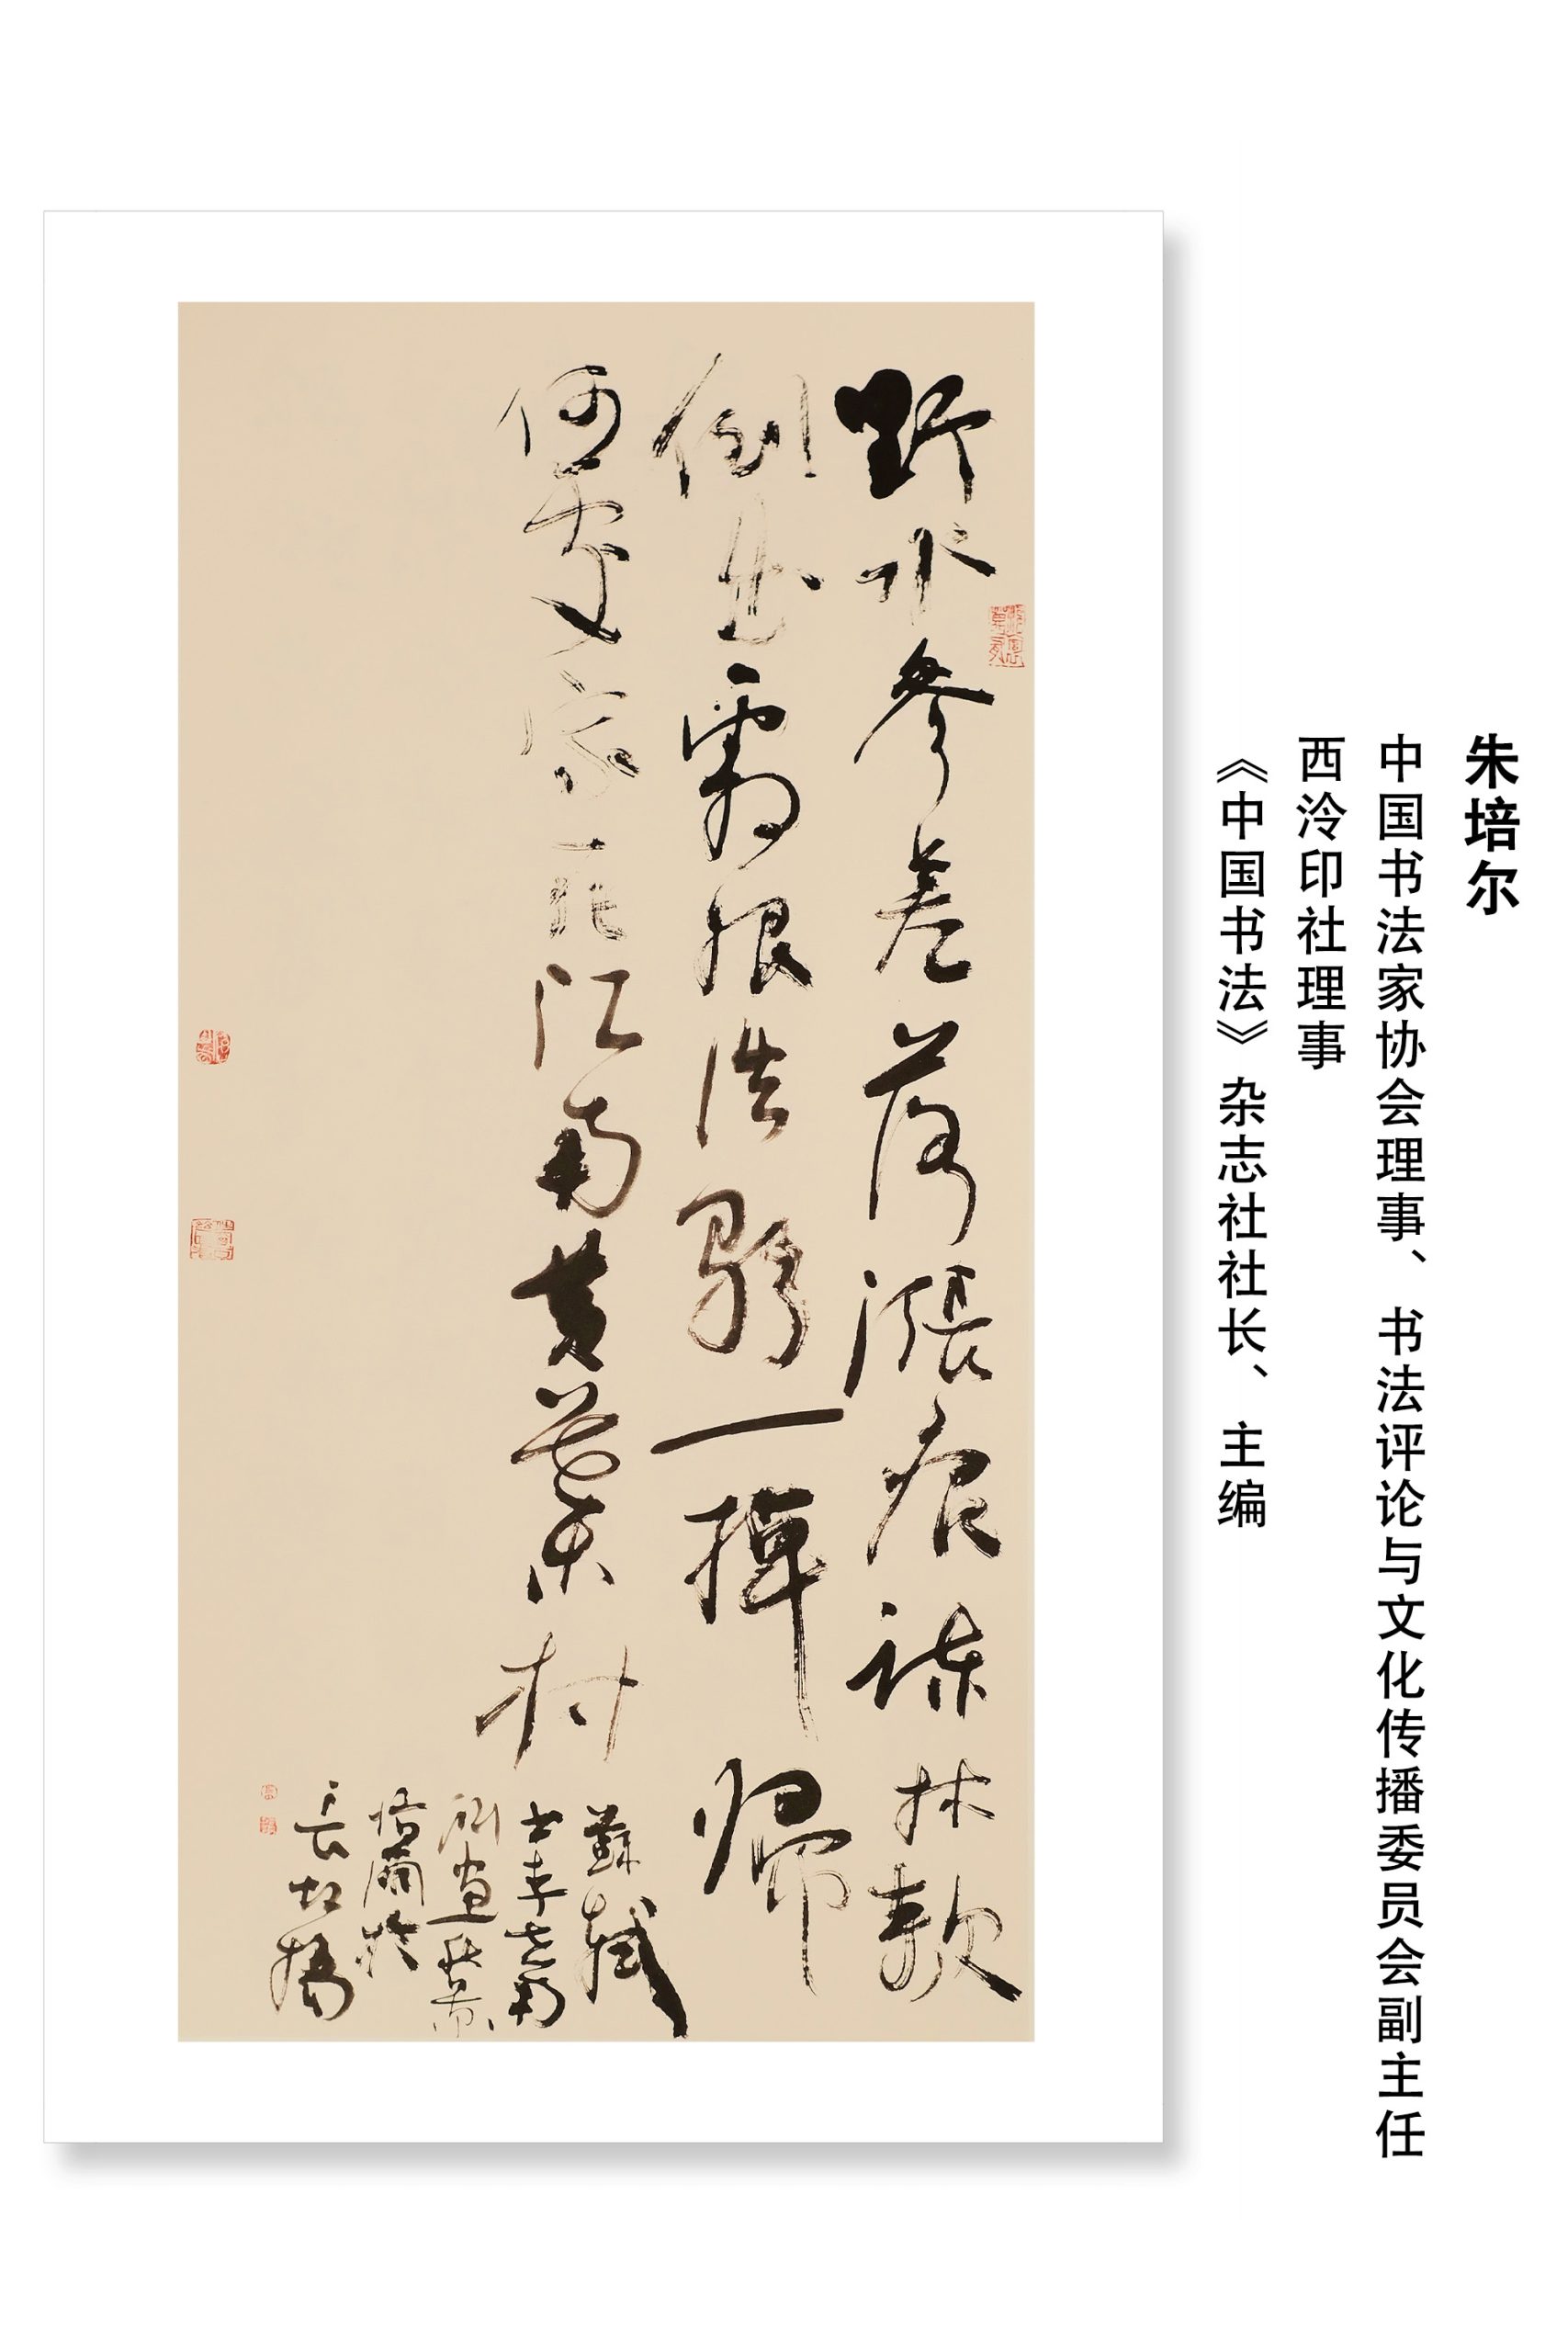 朱培尔
中国书法家协会理事、书法评论与文化传播委员会副主任
西泠印社理事
《中国书法》杂志社社长、主编
野水参差落漲痕疎林欹
倒出霜根浩歌一棹歸
何處家在江南黄葉村
蘇軾
書李世南
所畫秋景
培爾於
長虹橋